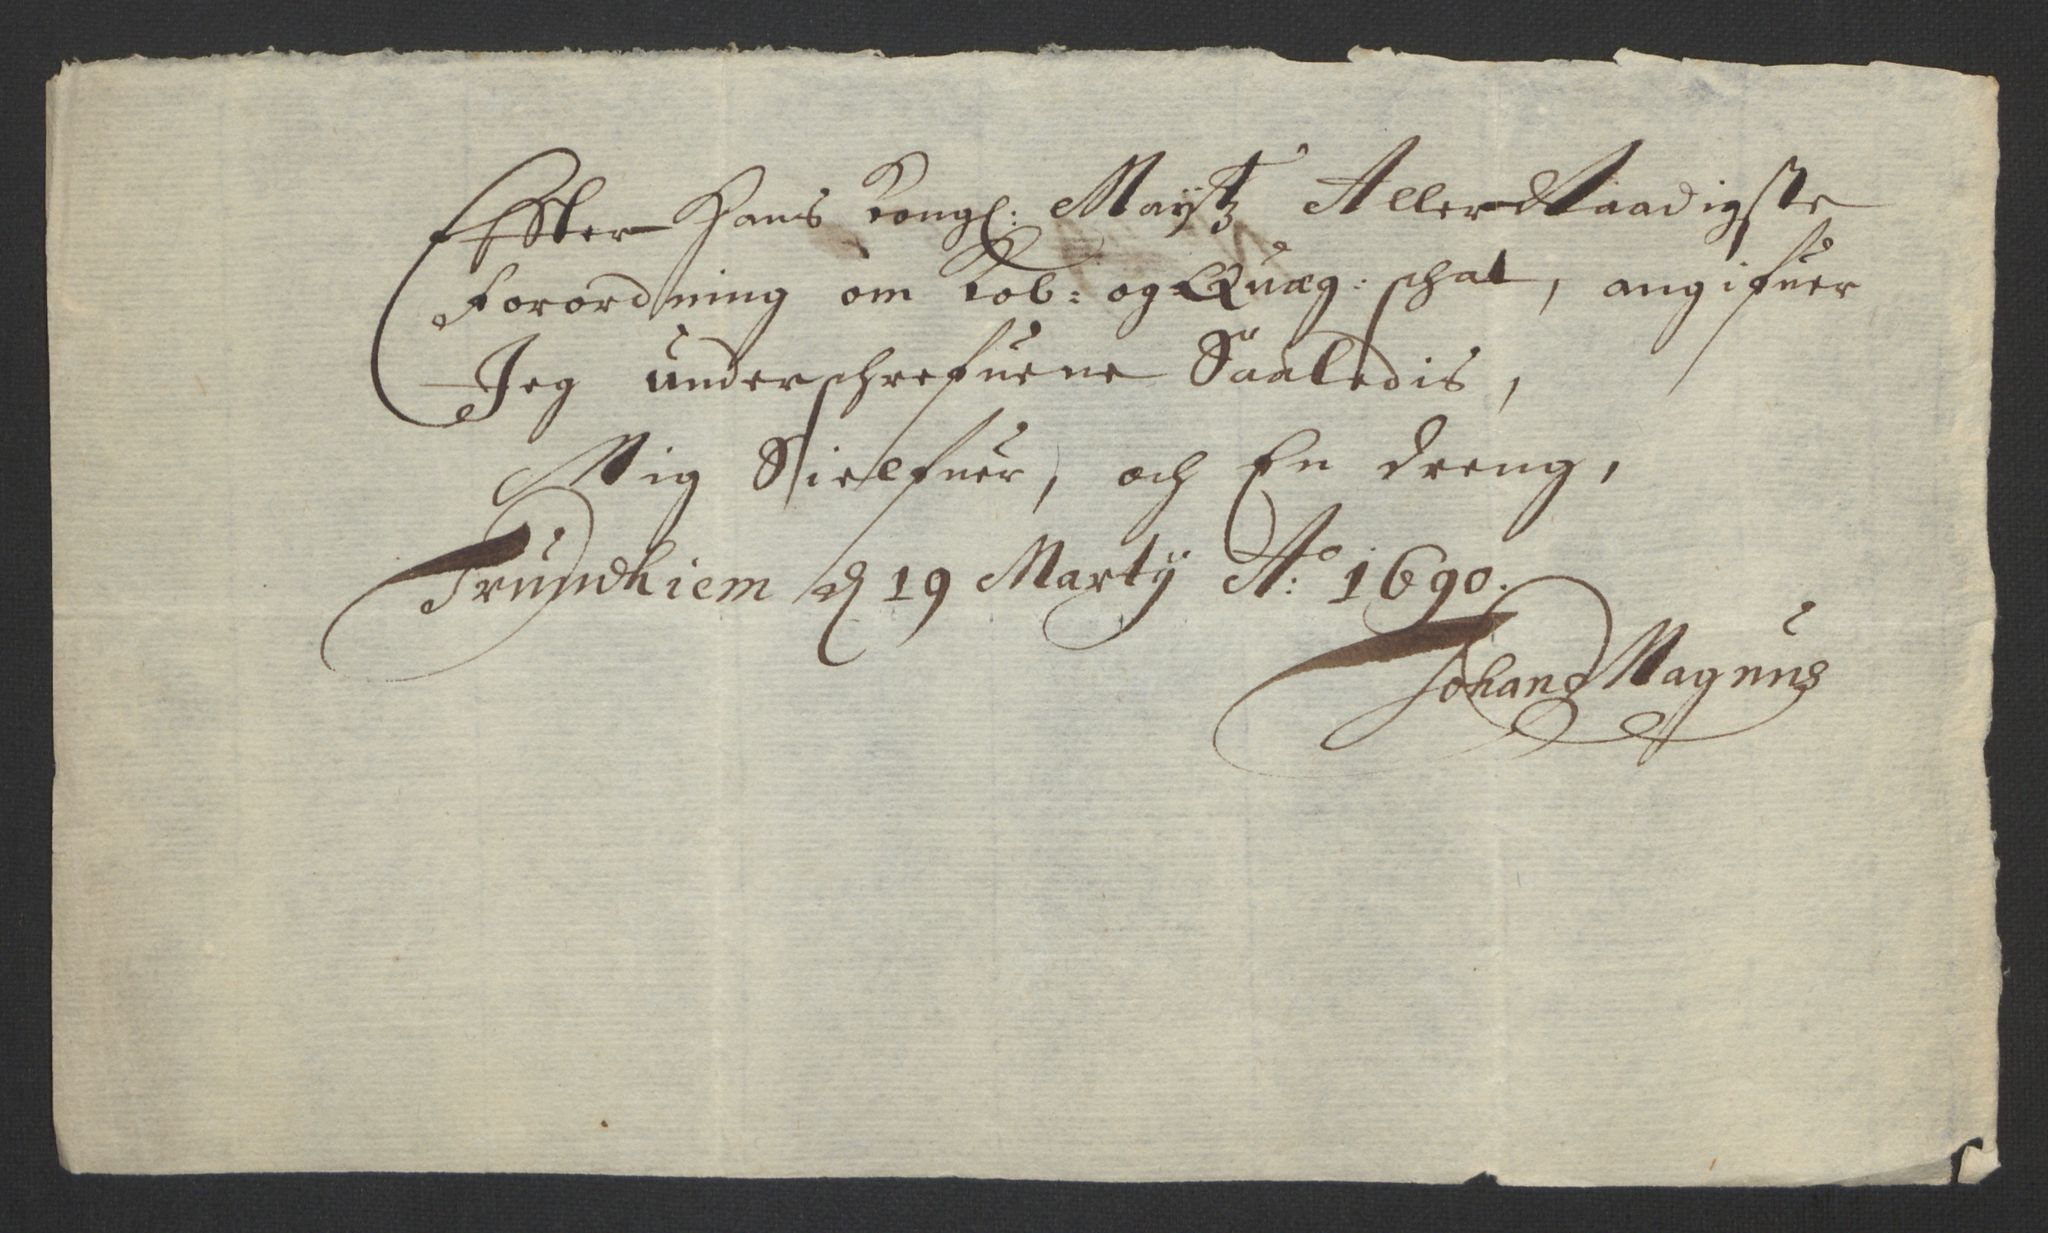 Effter Hans Kongl: Maÿtz Aller Naadigste
forordning om Kob: og Quæg: schat, angifuer
Jeg underschrefuene Saaledis,
Mig Sielfuer, och En dreng,
Trundhiem d 19 Martij A:o 1690.
Johans Magnus